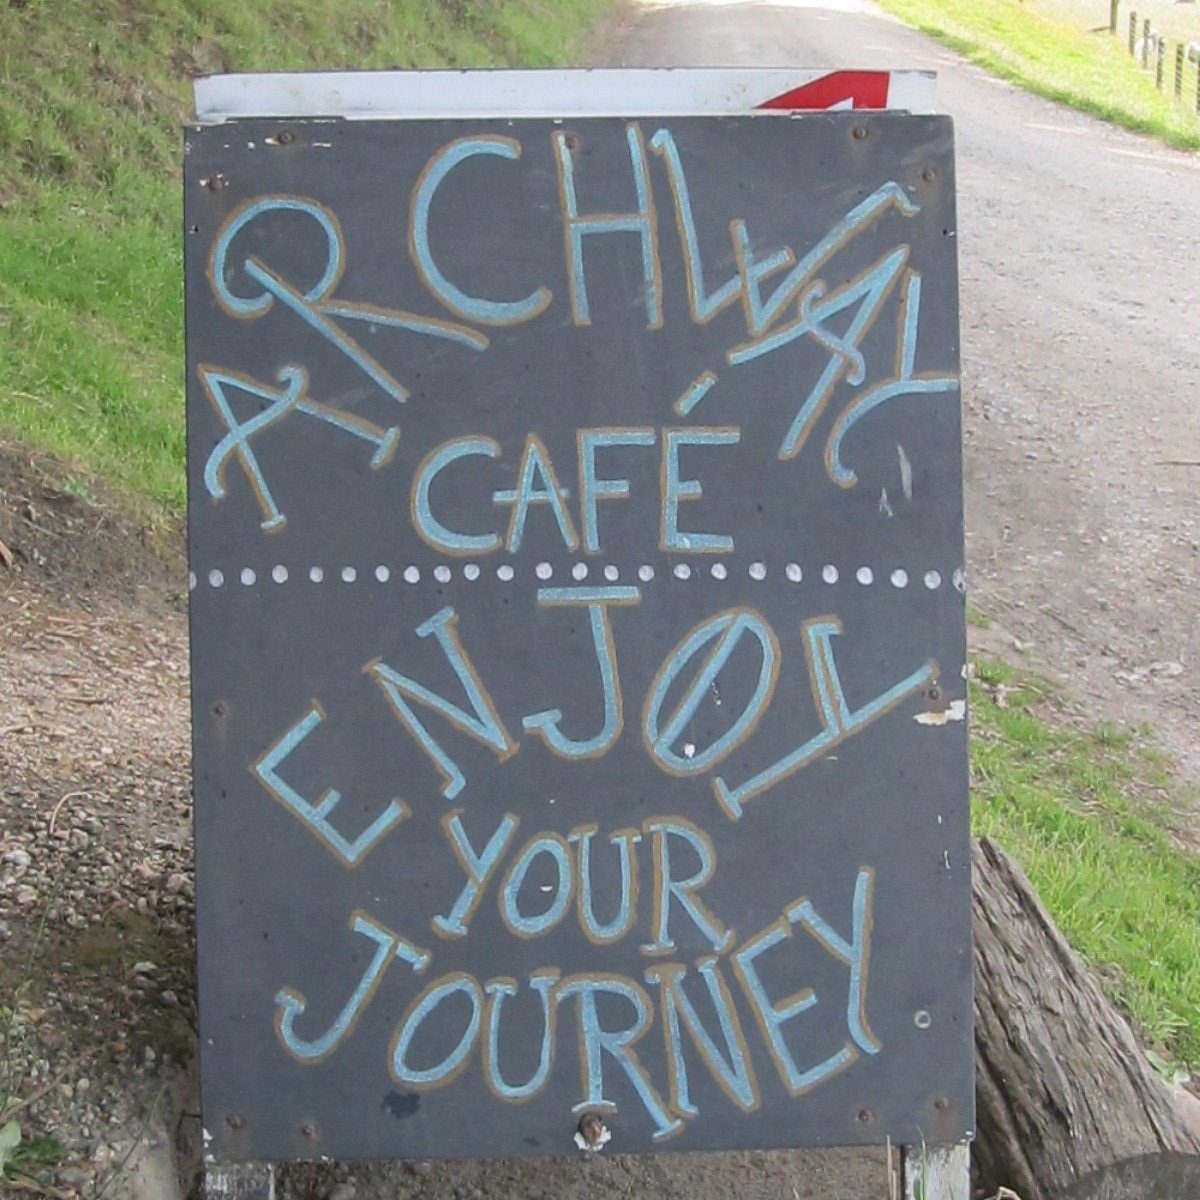 ARCHWAY
CAFÉ
ENJOY
YOUR
JOURNEY